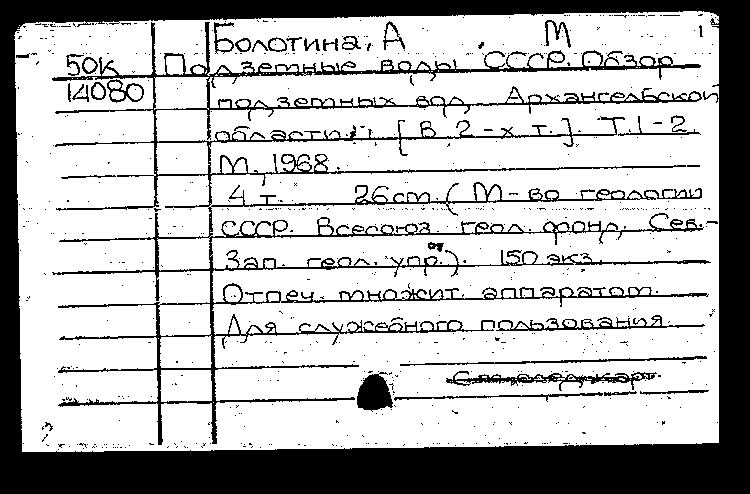 1
Болотина, А. М
50к Подземные воды СССР. Обзор
14080 подземных вод Архангельской
области. [В 2-х т.]. Т. 1-2.
М., 1968.
4 т. 26 см. (М-во геологии
СССР. Всесоюз. геол. фонд, Сев.-
Зап. геол. упр.). 150 экз.
Отпеч. множит. аппаратом.
Для служебного пользования.